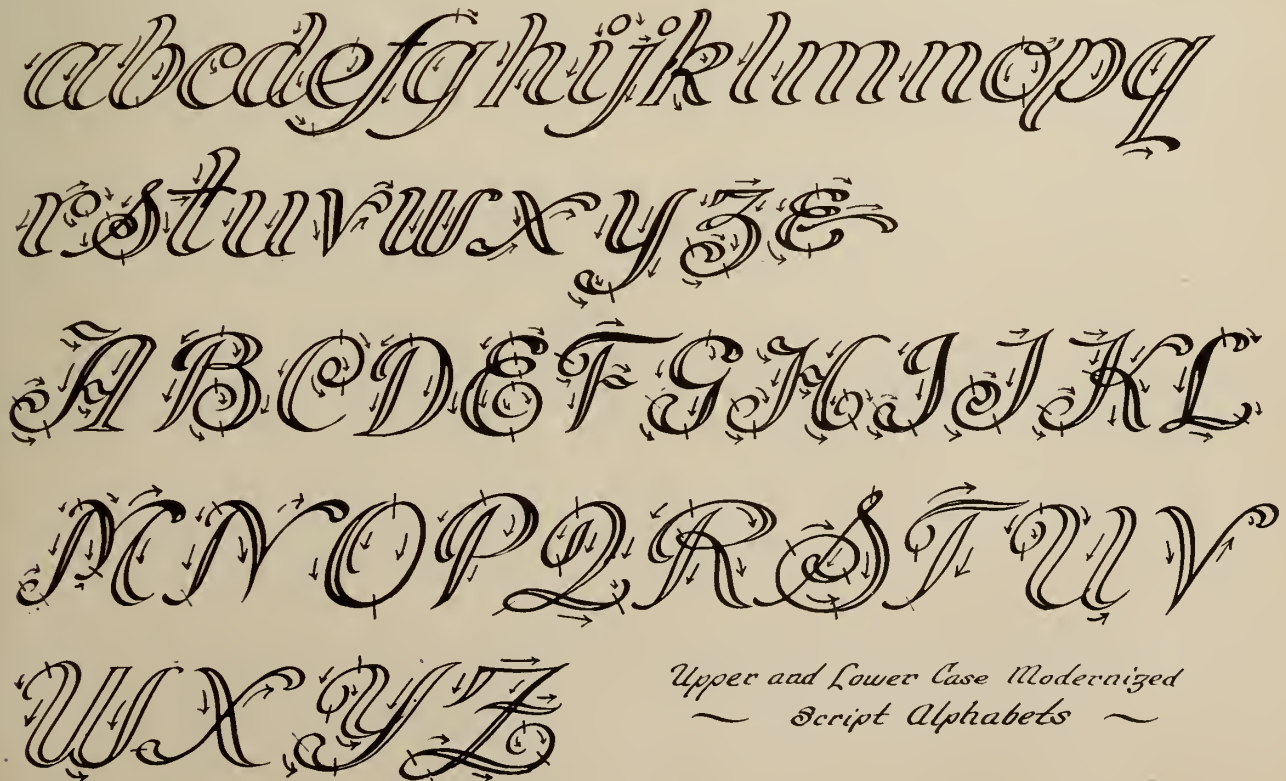 abcdefghijklmnopq
rstuvwxyz&
ABCDEFGHIJKL
MNOPQRSTUV
WXYZ
Upper and Lower Case Modernized
Script Alphabets